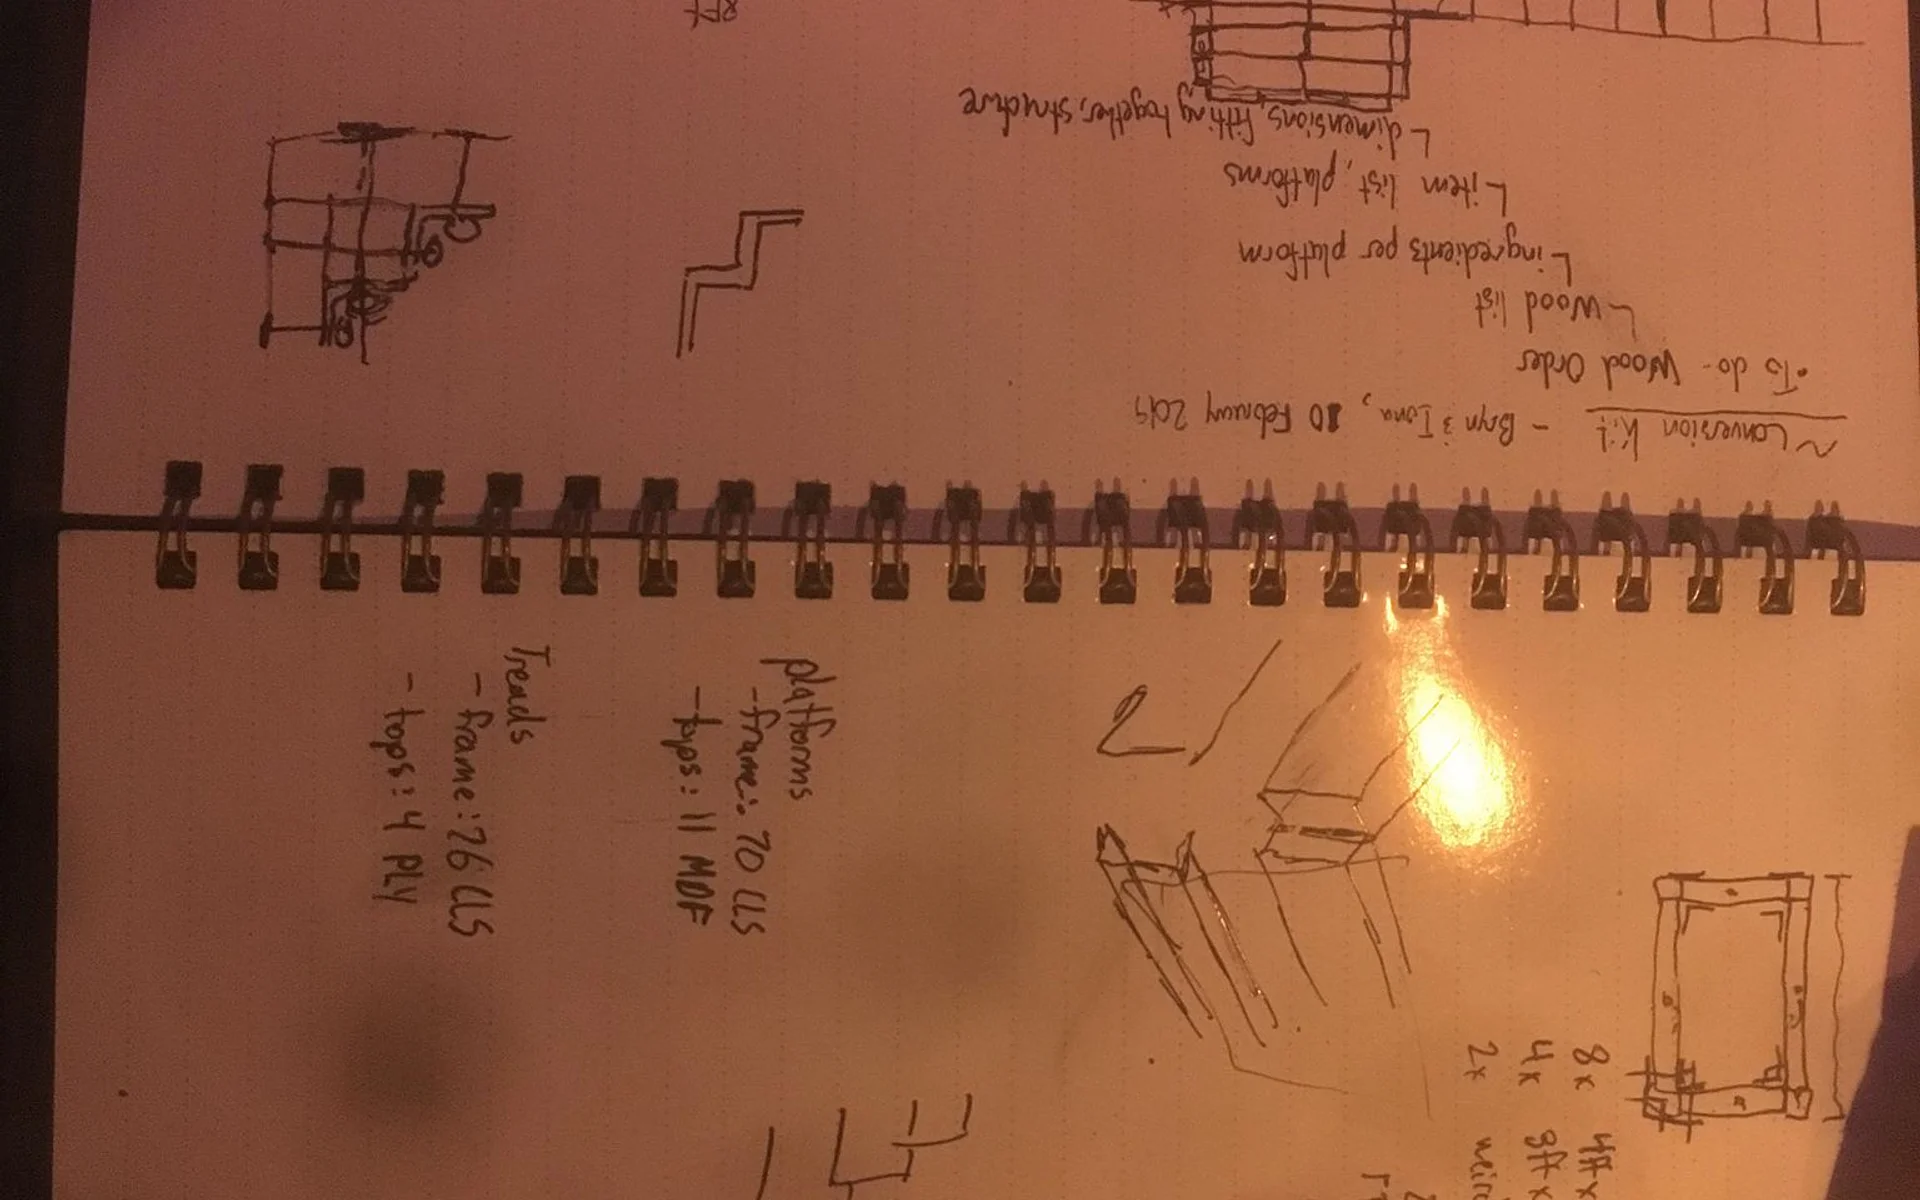 ~ Conversion Kit - Bryn & Iona, 10 February 2019
• To do - Wood Order
- Wood list
- ingredients per platform
- item list, platforms
- dimensions, fitting together, structure
8FT
platforms
- frame: 70 CLS
- tops: 11 MDF
Treads
- frame: 26 CLS
- tops: 4 PLY
8x 4ft x
4x 3ft x
2x